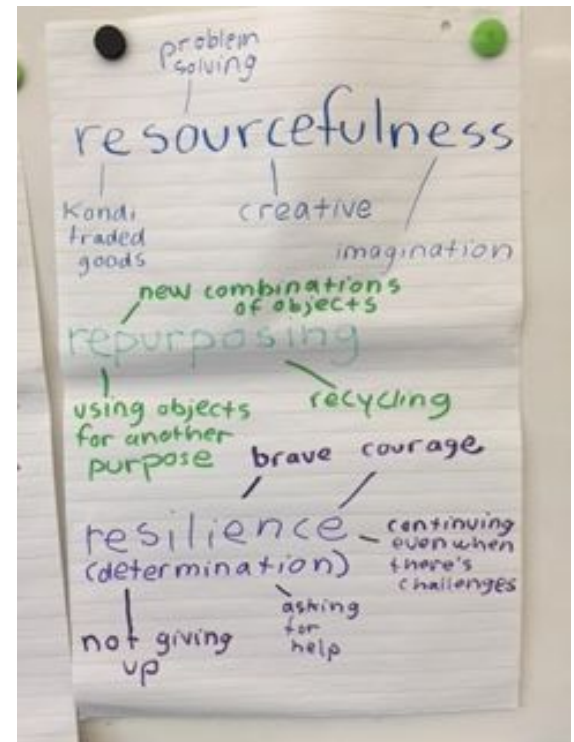 problem
solving
resourcefulness
Kondi
traded
goods
creative
imagination
new combinations
of objects
repurposing
using objects
for another
purpose
recycling
brave courage
resilience
(determination)
continuing
even when
there's
challenges
not giving
up
asking
for
help